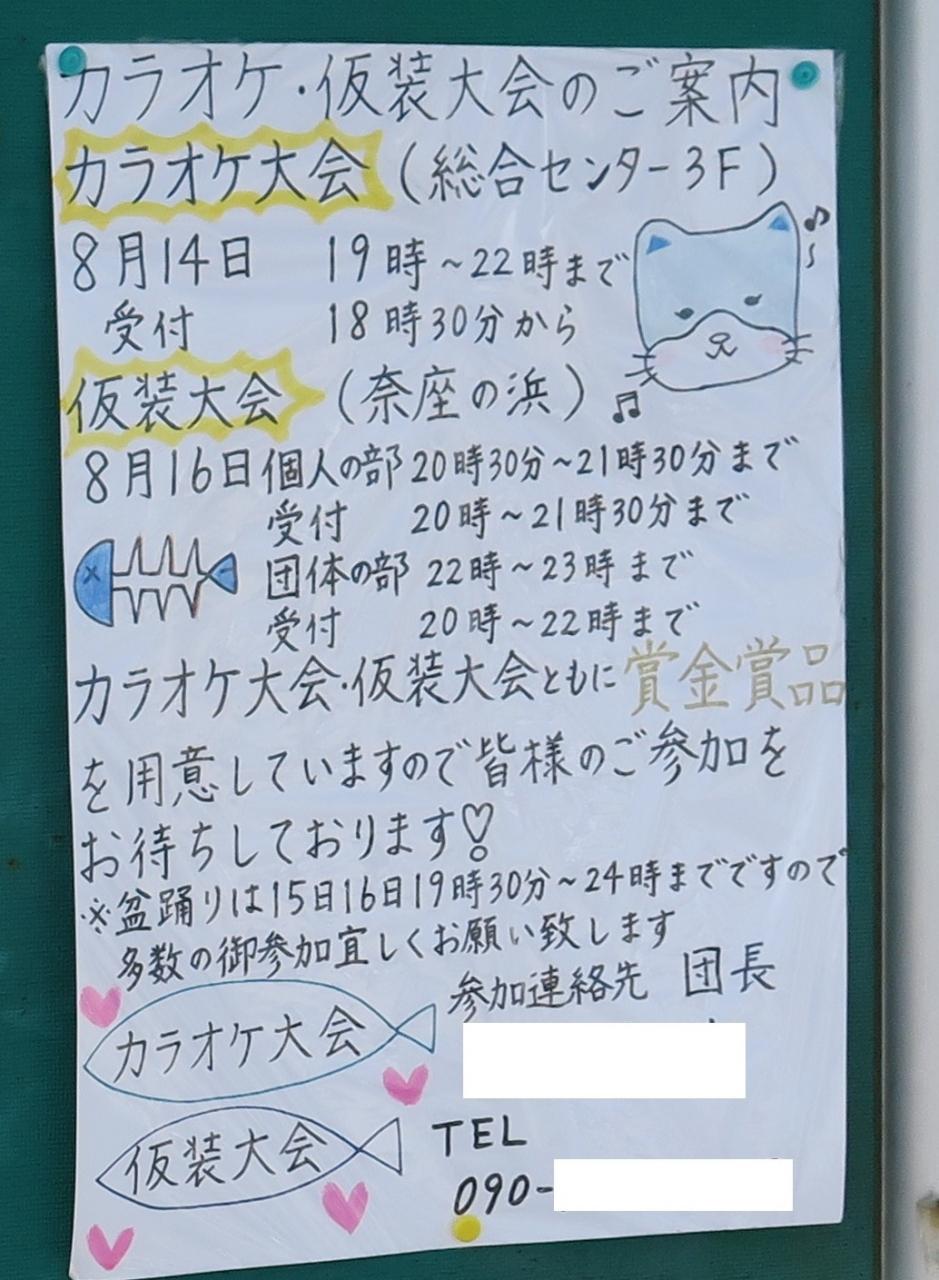 カラオケ・仮装大会のご案内
カラオケ大会（総合センター3F）
8月14日 19時～22時まで
受付 18時30分から
仮装大会（奈座の浜）
8月16日個人の部20時30分～21時30分まで
受付 20時～21時30分まで
団体の部 22時～23時まで
受付 20時～22時まで
カラオケ大会・仮装大会ともに賞金賞品
を用意していますので皆様のご参加を
お待ちしております♡
※盆踊りは15日16日19時30分～24時までですので
多数の御参加宜しくお願い致します
参加連絡先 団長
カラオケ大会
仮装大会
TEL
090-